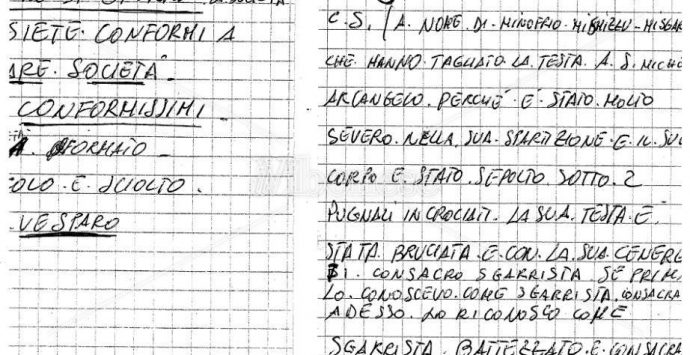 SIETE. CONFORMI A
ARE. SOCIETÀ
CONFORMISSIMI
A. FORMATO
COLO. E. SCIOLTO.
VESPARO
C. S. / A. NOME. DI. MINOFRIO. MISMIZZU - MISGAR
CHE HANNO. TAGLIATO. LA. TESTA. A. S. MICHE
ARCANGELO. PERCHÉ. E. STATO. MOLTO
SEVERO. NELLA. SUA. SPARTIZIONE. E. IL. SUO
CORPO E. STATO. SEPOLTO. SOTTO. 2
PUGNALI INCROCIATI. LA SUA. TESTA. E
STATA BRUCIATA. E. CON. LA. SUA. CENERE
SI. CONSACRO SGARRISTA SE PRIM
LO. CONOSCEVO. COME SGARRISTA. CONSACRA
ADESSO. LO RICONOSCO COME
SGARRISTA. BATTEZZATO. E. CONSACRA